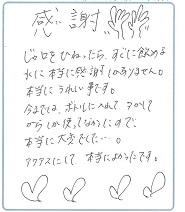 感謝
じゃ口をひねったら、すぐに飲める
水に本当に感謝しかありません。
本当にうれしい事です。
今までは、ボトルに入れて
からしか使ってなかしたので、
本当に大変でした…。
アクアスにして、本当によかったです。